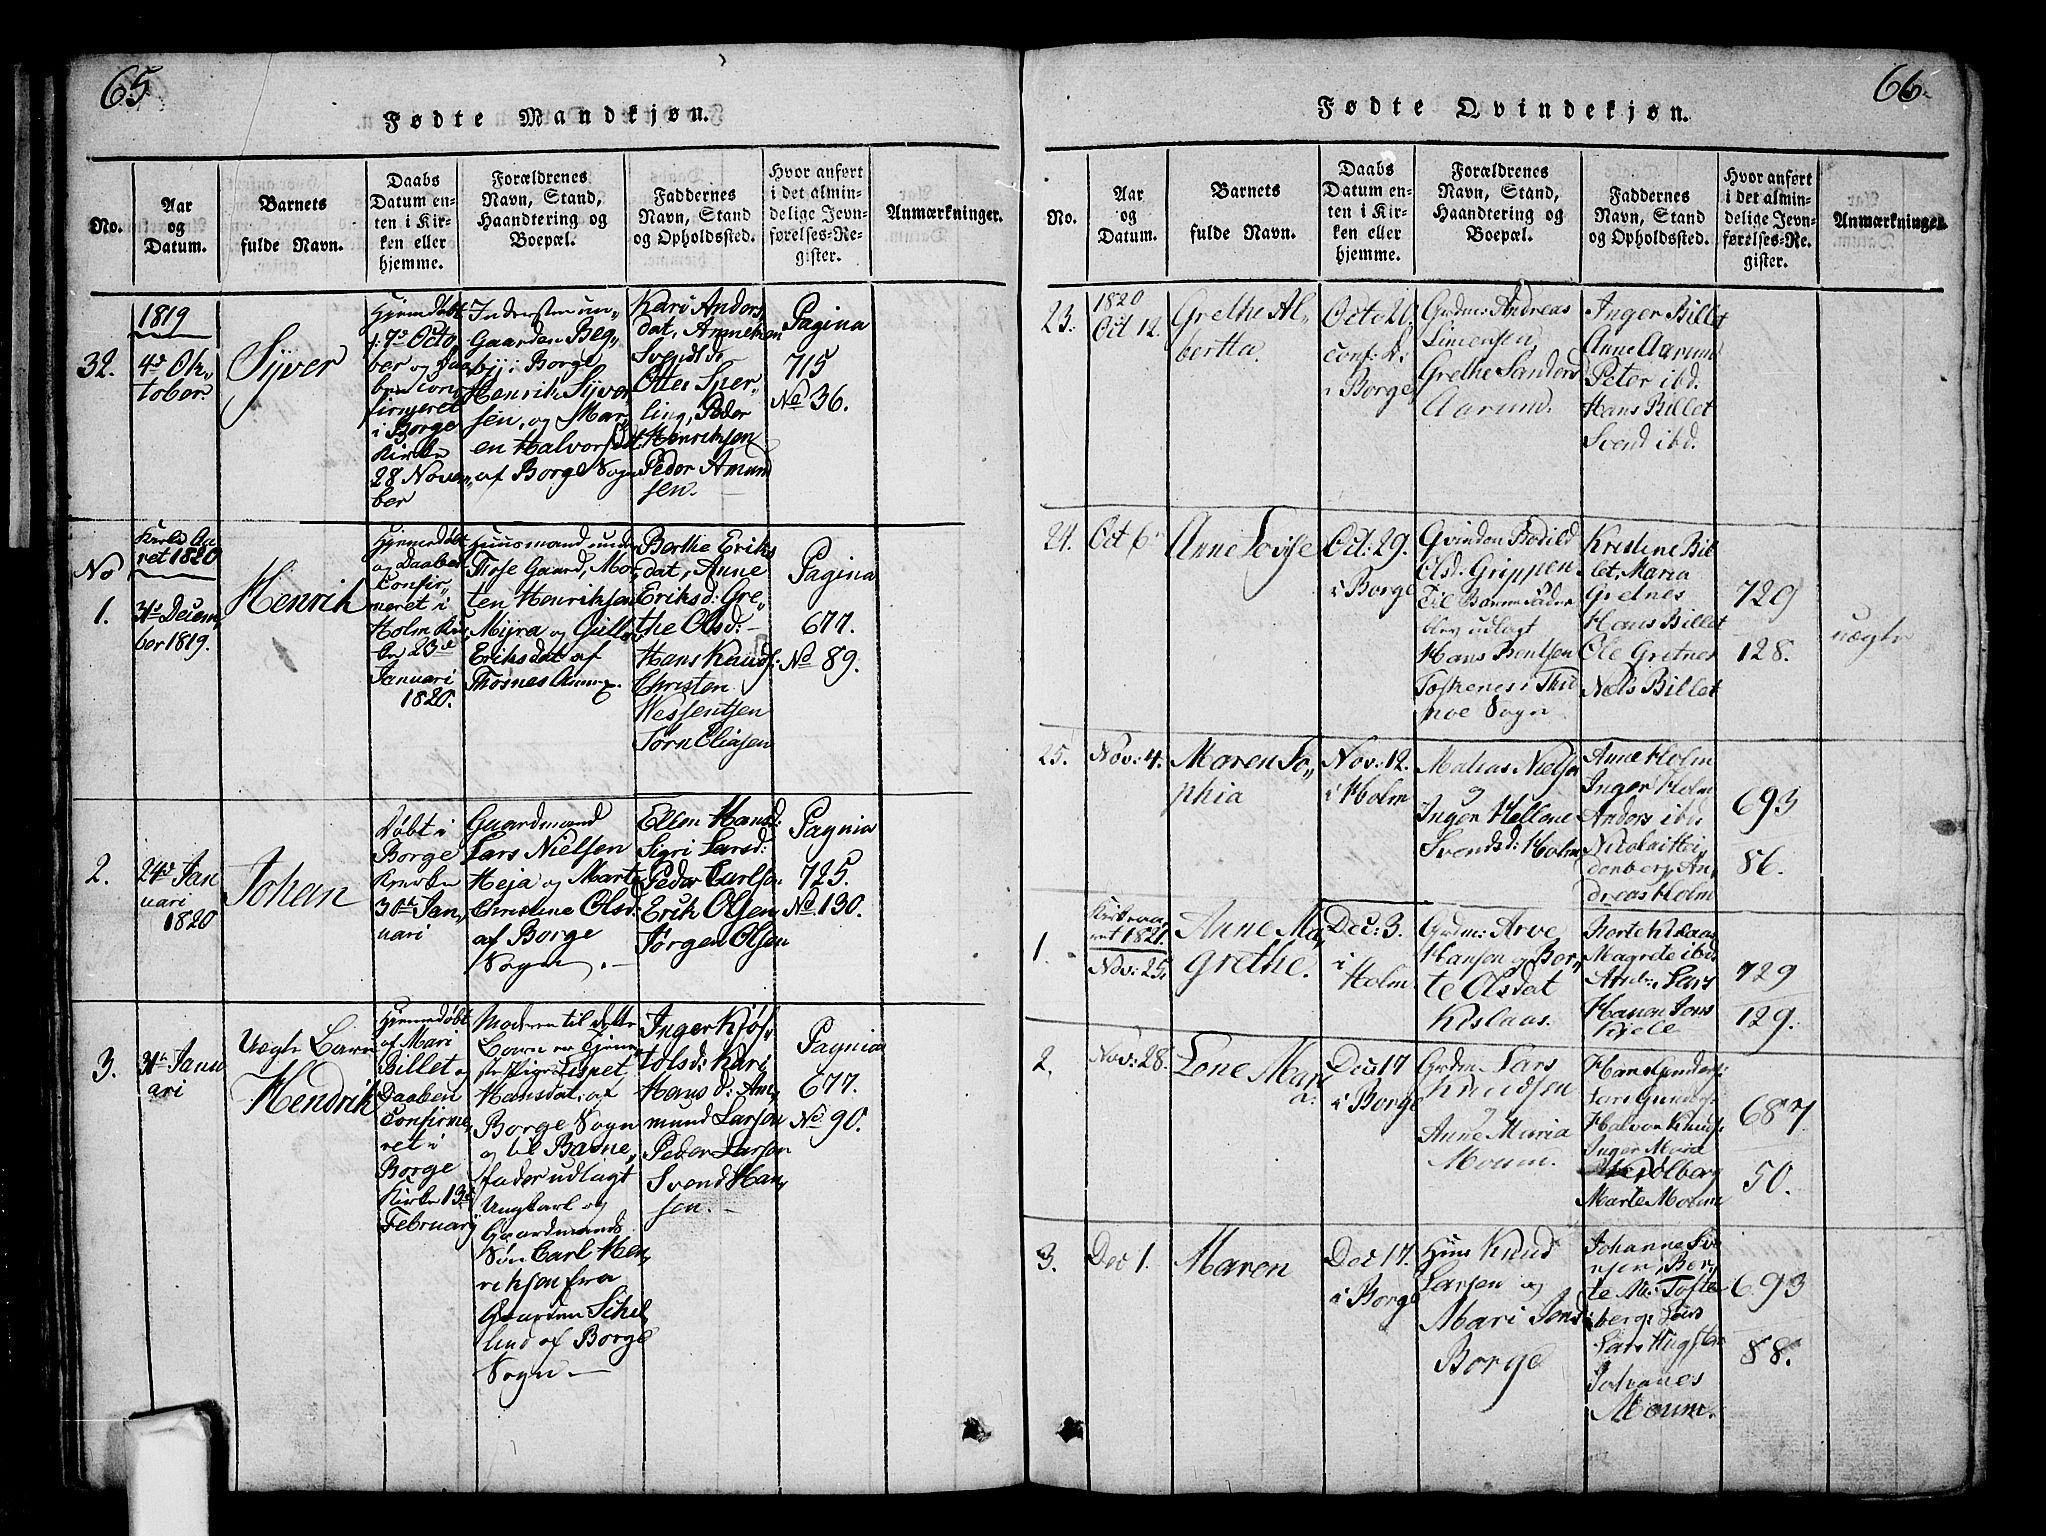 65
Fødte Mandkjøn.
No.
Aar
og
Datum.
Barnets
fulde Navn.
Daabs
Datum en-
ten i Kir-
ken eller
hjemme.
Forældrenes
Navn, Stand,
Haandtering og
Boepæl.
Faddernes
Navn, Stand
og Opholdssted.
Hvor anført
i det almin-
delige Jevn-
førelses-Re-
gister.
Anmærkninger.
32.
1819
4de Ok,,
tober
Syver
Hjemdøbt
d. 7de Octo
ber og Daa
ben con,,
firmeret
i Borge
Kirke
28 Novem,,
ber
Inderster un,,
Gaarden Beg,,
by i Borge
Henrik Syver
sen, og Mar,,
en Halvorsdt.
af Borge Sogn
Kari Anders,,
dat, Anne
Svendsd.
Otter Sper,,
ling, Peder
Henriksen
Peder Amund
sen.
Pagina
715
No 36.
No
1.
Kirke Aa,,
ret 1820
31te Decem,,
ber 1819.
Henrik
Hjemedøbt
og Daaben
Confir,,
meret i
Holm Kir,,
ke 23de
Januari
1820.
Huusmand under
Those Gaard, Mor,,
ten Henriksen
Myra og
Eriksdat af
Berthe Eriks
dat, Anne
Eriksd: Gre,,
the Olsd:
Hans Knuds:
Christen
Eliasen
Pagina
677.
No 89.
2.
24de Jan
uari
1820
Johan
Døbt i
Borge
Kirke
30te Jan,,
uari
Gaardmand
Lars Nielsen
Heja og Marte
Christine Olsd:
af Borge
Sogn. —
Ellen Hansd:
Sigri Larsd:
Peder Carlsen
Erik Olsen
Jørgen Olsen
Pagnia
725.
No 130.
3.
31te Janu
ari
Uægte Barn
Hendrik
Hjemedøbt
af Mari
Billet og
Daaben
Confirme,,
ret i
Borge
Kirke 13de
February
Moderen til dette
Barn er Tjene,,
ste Pige Lispet
Hansdat: af
Borge Sogn
og til Barne,,
fader udlagt
Ungkarl og
Gaardmands
Søn Carl Hen,,
riksen fra
Gaarden Skjel,,
lind af Borge
Sogn. —
Inger Kjøs
Olsd: Kari
Hans d: Am,,
mund Larsen
Peder Larsen
Svend Han,,
sen. —
Pagnia
677.
No 90.
66.
Fødte Qvindekjøn.
No.
Aar
og
Datum.
Barnets
fulde Navn.
Daabs
Datum en-
ten i Kir-
ken eller
hjemme.
Forældrenes
Navn, Stand,
Haandtering og
Boepæl.
Faddernes
Navn, Stand
og Opholdssted.
Hvor anført
i det almin-
delige Jevn-
førelses-Re-
gister.
Anmærkninger.
23.
1820
Oct 12.
Grethe Al,,
bertta,
Octo 20.
conf: D:
i Borge
Grdm: Andreas
Simensen
Grethe Sanders
Aarum.
Inger Billet
Anne Aarum
Peter ibd.
Hans Billet
Svend ibd.
24.
Oct 6
Anne Lovise
Oct: 29.
i Borge
Qvinden Bodild
Olsd: Grippen
Til Barne Fader
blev udlagt
Hans Bentsen
Toskenes i Thu
nøe Sogn
Kristine Bil
let, Maria
Gretnes
Hans Billet
Ole Gretnes
Niels Billet
729
128.
uægte
25.
Nov: 4.
Maren So,,
phia
Nov: 12.
i Holm
Matias Nielsen
og
Inger Hellene
Svendsd: Holm
Anne Holm
Inger Holm
Anders ibd.
Nicolai Hei,,
denberg, An,,
dreas Holm
693
86.
1.
Kirkeaa,,
ret 1821.
Nov: 25.
Anne Ma,,
grethe.
Dec: 3.
i
Holm
Grdm: Arve
Hansen og Ber,,
te Olsdat
Kislaas.
Berte Kislaas
Magrete ibd.
Lars
Hanen Jens
Kjele
729
129.
2.
Nov: 28.
Lene Mari
a:
Dec 17
i Borge
Grdm Lars
Knudsen
og
Anne Maria
Moum.
Hans
Lars
Halvor Knuds:
Inger Marie
Olberg
Marte Molem
687
50.
3.
Dec 1.
Maren
Dec 17.
i Borge
Huus Knud
Larsen og
Mari Jensd:
Borge
Johanne
te M: Tofte
berg:
Lars
Johanes
Moum.
693
88.